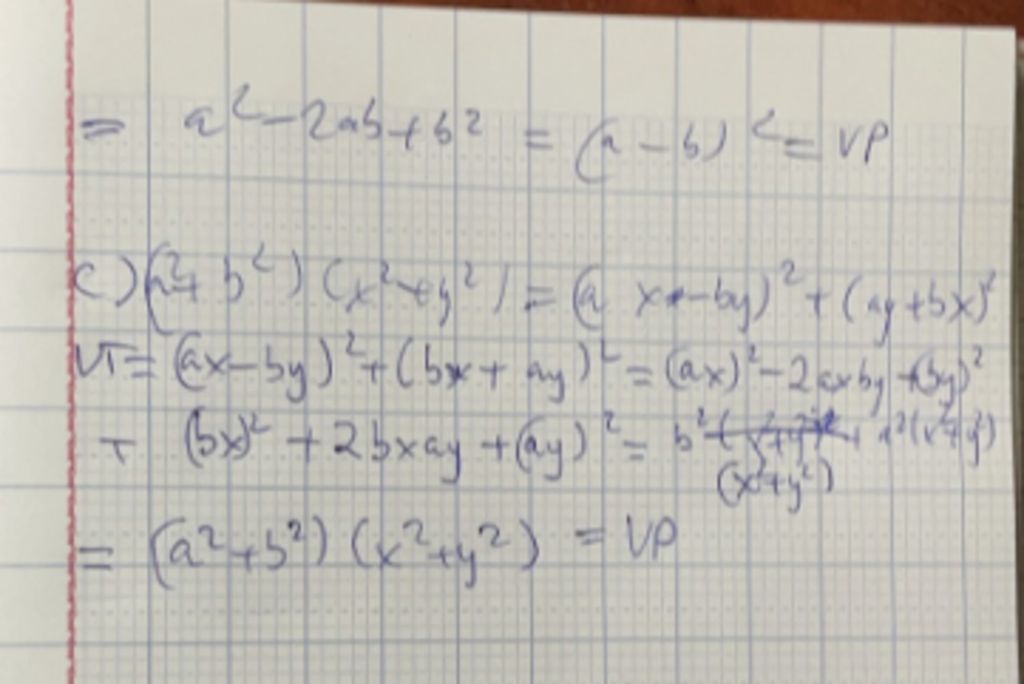 = a² - 2ab + b² = (a - b)² = VP
c) (a² + b²) (x² + y²) = (a x - by)² + (ay + bx)²
VT = (ax - by)² + (bx + ay)² = (ax)² - 2axby + (by)²
+ (bx)² + 2bxay + (ay)² = b² + a²(x² + y²)
(x² + y²)
= (a² + b²) (x² + y²) = VP